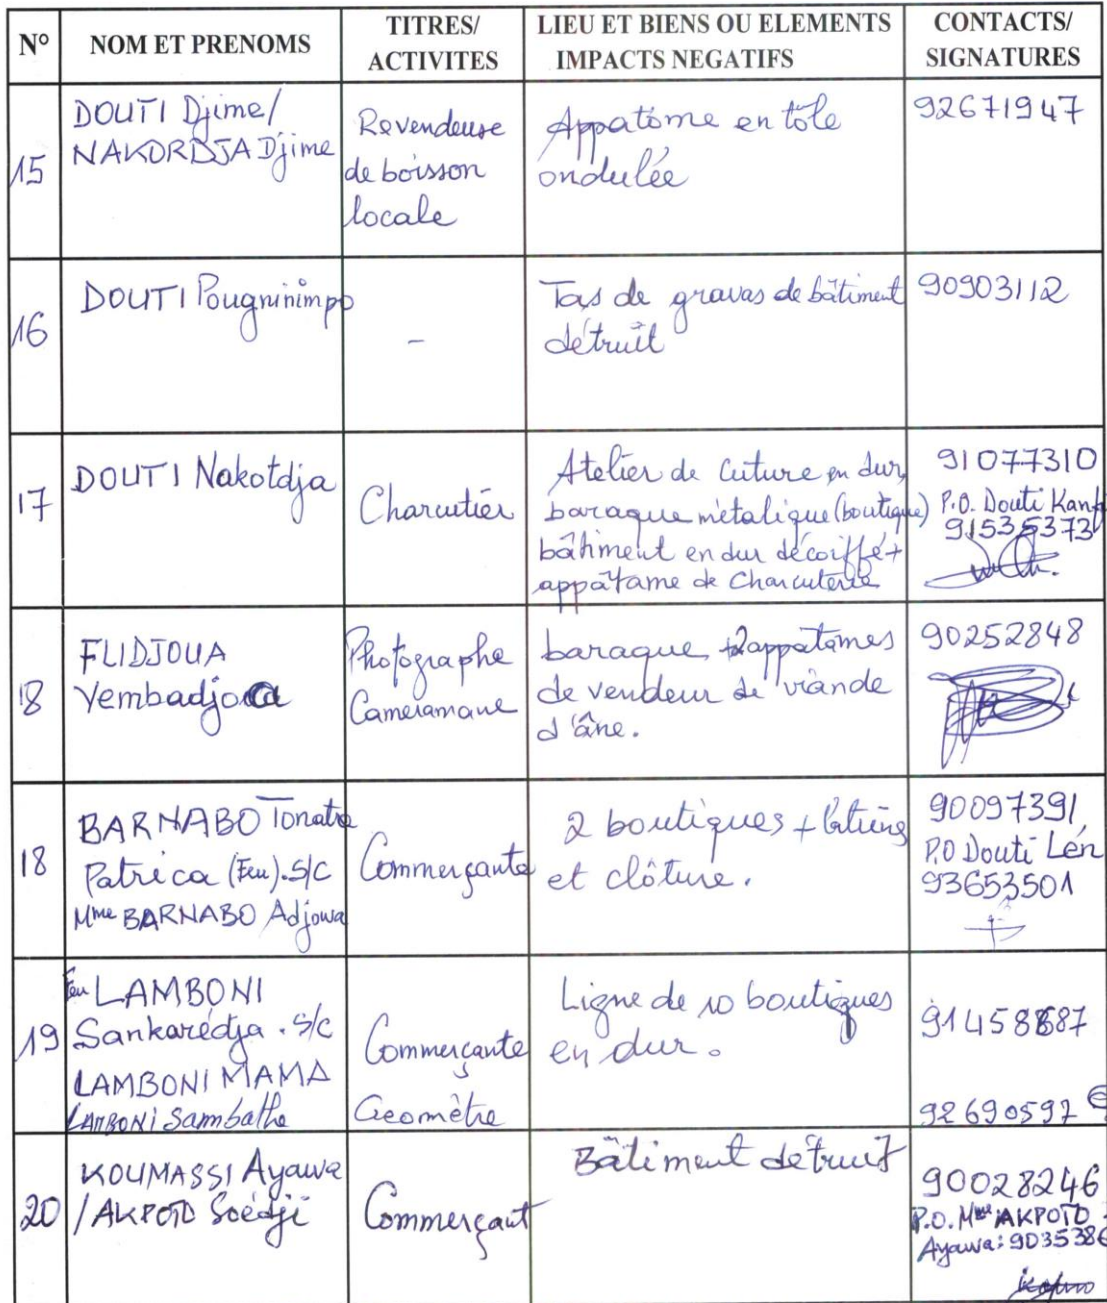 N°
NOM ET PRENOMS
TITRES/
ACTIVITES
LIEU ET BIENS OU ELEMENTS
IMPACTS NEGATIFS
CONTACTS/
SIGNATURES
15
DOUTI Djime/
NAKORDJA Djime
Revendeuse
de boisson
locale
Appatâme en tôle
ondulée
92671947
16
DOUTI Pougninimpo
-
Tas de gravas de bâtiment
détruit
90903112
17
DOUTI Nakotdja
Charcutier
Atelier de cuture en dur,
baraque métalique (boutique)
bâtiment en dur décoiffé +
appâtame de Charcuterie
91077310
P.O. Douti Kanf
91535373
18
FLIDJOUA
Yembadjoa
Photographe
Cameramane
baraque +2 appatames
de vendeur de viande
d'âne.
90252848
18
BARNABO Tonatre
Patrica (Feu). S/C
Mme BARNABO Adjowa
Commerçante
2 boutiques + latrins
et clôture.
90097391
P.O Douti Lén
93653501
19
Feu LAMBONI
Sankarédja . S/C
LAMBONI MAMA
LAMBONI Sambathe
Commerçante
Geomètre
Ligne de 10 boutiques
en dur.
91458887
92690597
20
KOUMASSI Ayawa
/ AKPOTO Soédji
Commerçant
Bâtiment détruit
90028246
P.O. Mme AKPOTO
Ayawa: 9035386